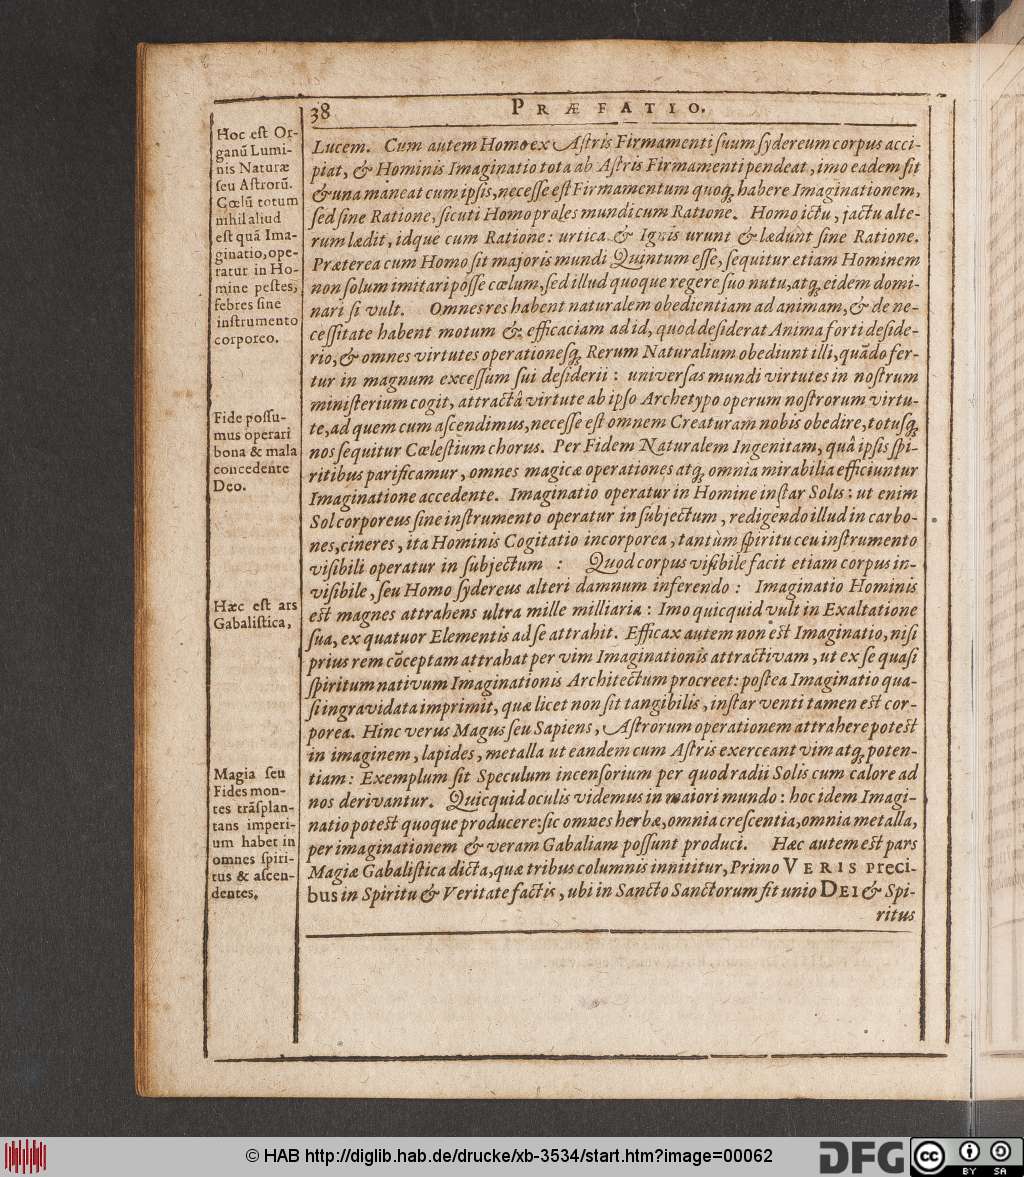 38 PRÆFATIO.
Hoc est Or-
ganū Lumi-
nis Naturæ
seu Astrorū.
Cœlū totum
nihil aliud
est quā Ima-
ginatio, ope-
ratur in Ho-
mine pestes,
febres sine
instrumento
corporeo.
Fide possu-
mus operari
bona & mala
concedente
Deo.
Hæc est ars
Gabalistica,
Magia seu
Fides mon-
tes trāsplan-
tans imperi-
um habet in
omnes spiri-
tus & ascen-
dentes.
Lucem. Cum autem Homo ex Astris Firmamenti suum sydereum corpus acci-
piat, & Hominis Imaginatio tota ab Astris Firmamenti pendeat, imo eadem sit
& una maneat cum ipsis, necesse est Firmamentum quoq; habere Imaginationem,
sed sine Ratione, sicuti Homo proles mundi cum Ratione. Homo ictu, jactu alte-
rum lædit, idque cum Ratione: urtica & Ignis urunt & lædunt sine Ratione.
Præterea cum Homo sit majoris mundi Quintum esse, sequitur etiam Hominem
non solum imitari posse cœlum, sed illud quoque regere suo nutu, atq; eidem domi-
nari si vult. Omnes res habent naturalem obedientiam ad animam, & de ne-
cessitate habent motum & efficaciam ad id, quod desiderat Anima forti deside-
rio, & omnes virtutes operationesq; Rerum Naturalium obediunt illi, quādo fer-
tur in magnum excessum sui desiderii: universas mundi virtutes in nostrum
ministerium cogit, attractâ virtute ab ipso Archetypo operum nostrorum virtu-
te, ad quem cum ascendimus, necesse est omnem Creaturam nobis obedire, totusq;
nos sequitur Cœlestium chorus. Per Fidem Naturalem Ingenitam, quâ ipsis spi-
ritibus parificamur, omnes magicæ operationes atq; omnia mirabilia efficiuntur
Imaginatione accedente. Imaginatio operatur in Homine instar Solis: ut enim
Sol corporeus sine instrumento operatur in subjectum, redigendo illud in carbo-
nes, cineres, ita Hominis Cogitatio incorporea, tantùm spiritu ceu instrumento
visibili operatur in subjectum : Quod corpus visibile facit etiam corpus in-
visibile, seu Homo sydereus alteri damnum inferendo : Imaginatio Hominis
est magnes attrahens ultra mille milliaria: Imo quicquid vult in Exaltatione
sua, ex quatuor Elementis ad se attrahit. Efficax autem non est Imaginatio, nisi
prius rem cōceptam attrahat per vim Imaginationis attractivam, ut ex se quasi
spiritum nativum Imaginationis Architectum procreet: postea Imaginatio qua-
si ingravidata imprimit, quæ licet non sit tangibilis, instar venti tamen est cor-
porea. Hinc verus Magus seu Sapiens, Astrorum operationem attrahere potest
in imaginem, lapides, metalla ut eandem cum Astris exerceant vim atq; poten-
tiam: Exemplum sit Speculum incensorium per quod radii Solis cum calore ad
nos derivantur. Quicquid oculis videmus in maiori mundo: hoc idem Imagi-
natio potest quoque producere: sic omnes herbæ, omnia crescentia, omnia metalla,
per imaginationem & veram Gabaliam possunt produci. Hæc autem est pars
Magiæ Gabalistica dicta, quæ tribus columnis innititur, Primo VERIS preci-
bus in Spiritu & Veritate factis, ubi in Sancto Sanctorum fit unio DEI & Spi-
ritus
© HAB http://diglib.hab.de/drucke/xb-3534/start.htm?image=00062
DFG
cc
BY SA